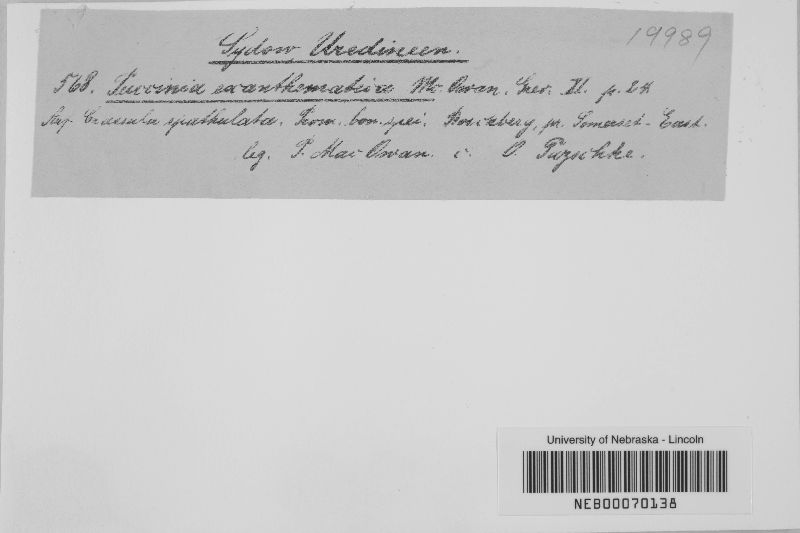 19989
Sydow, Uredineen.
568. Puccinia exanthematica Mc Owan. Grev. XI. p. 24
Auf Crassula spathulata. Prom. bon. spei. Boschberg, pr. Somerset-East.
leg. P. Mac Owan. c. O. Pazschke.
University of Nebraska - Lincoln
NEB00070138